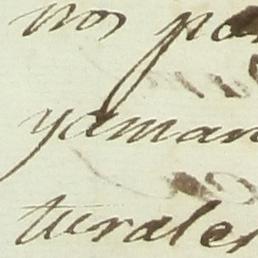 nos pa
yaman
turales